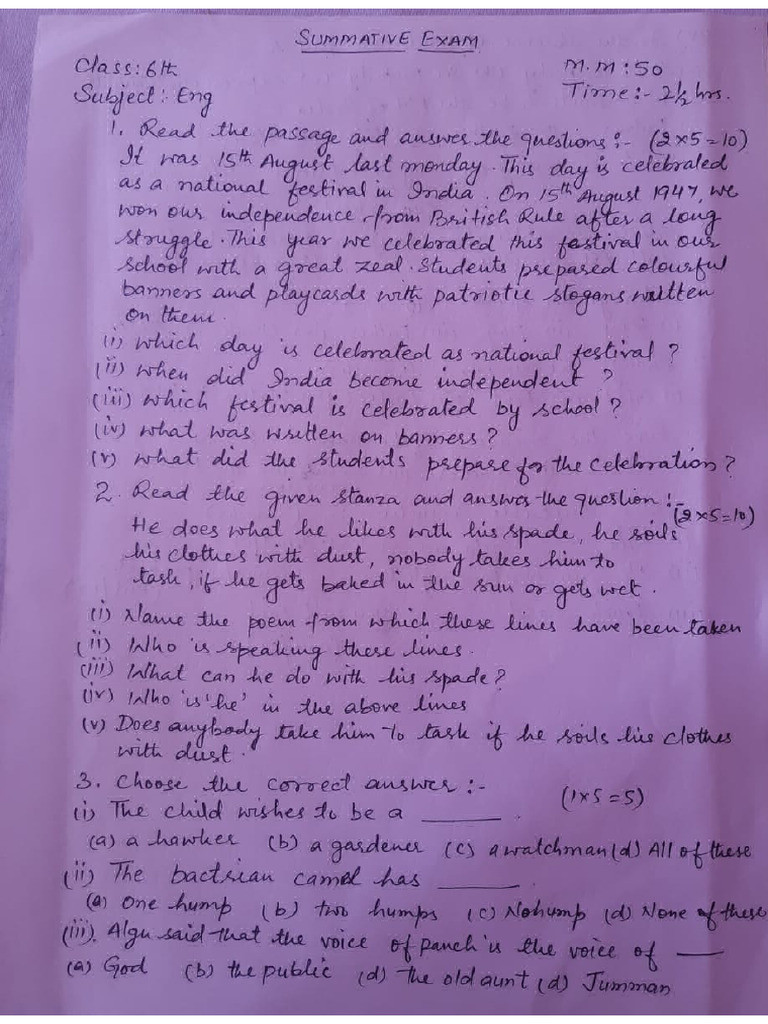 SUMMATIVE EXAM
Class: 6th M.M: 50
Subject: Eng Time:- 2½ hrs.
1. Read the passage and answer the questions :- (2×5=10)
It was 15th August last monday. This day is celebrated
as a national festival in India. On 15th August 1947, we
won our independence from British Rule after a long
struggle. This year we celebrated this festival in our
school with a great zeal. Students prepared colourful
banners and playcards with patriotic slogans written
on them.
(i) which day is celebrated as national festival ?
(ii) when did India become independent ?
(iii) which festival is celebrated by school ?
(iv) what was written on banners ?
(v) what did the students prepare for the celebration ?
2. Read the given stanza and answer the question :- (2×5=10)
He does what he likes with his spade, he soils
his clothes with dust, nobody takes him to
task, if he gets baked in the sun or gets wet.
(i) Name the poem from which these lines have been taken
(ii) Who is speaking these lines.
(iii) What can he do with his spade?
(iv) Who is 'he' in the above lines
(v) Does anybody take him to task if he soils his clothes
with dust.
3. Choose the correct answer :- (1×5=5)
(i) The child wishes to be a ______.
(a) a hawker (b) a gardener (c) a watchman (d) All of these
(ii) The bactrian camel has ______
(a) One hump (b) two humps (c) No hump (d) None of these
(iii). Algu said that the voice of panch is the voice of ____
(a) God (b) the public (d) the old aunt (d) Jumman